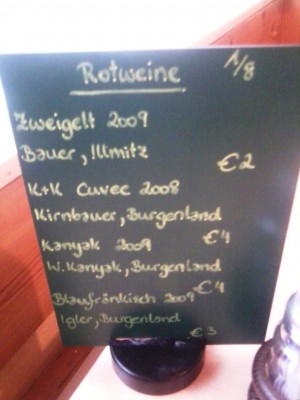 Rotweine 1/8
Zweigelt 2009
Bauer, Illmitz
€2
K+K Cuvee 2008
Kirnbauer, Burgenland
€4
Kanyak 2009
W. Kanyak, Burgenland
€4
Blaufränkisch 2009
Igler, Burgenland
€3